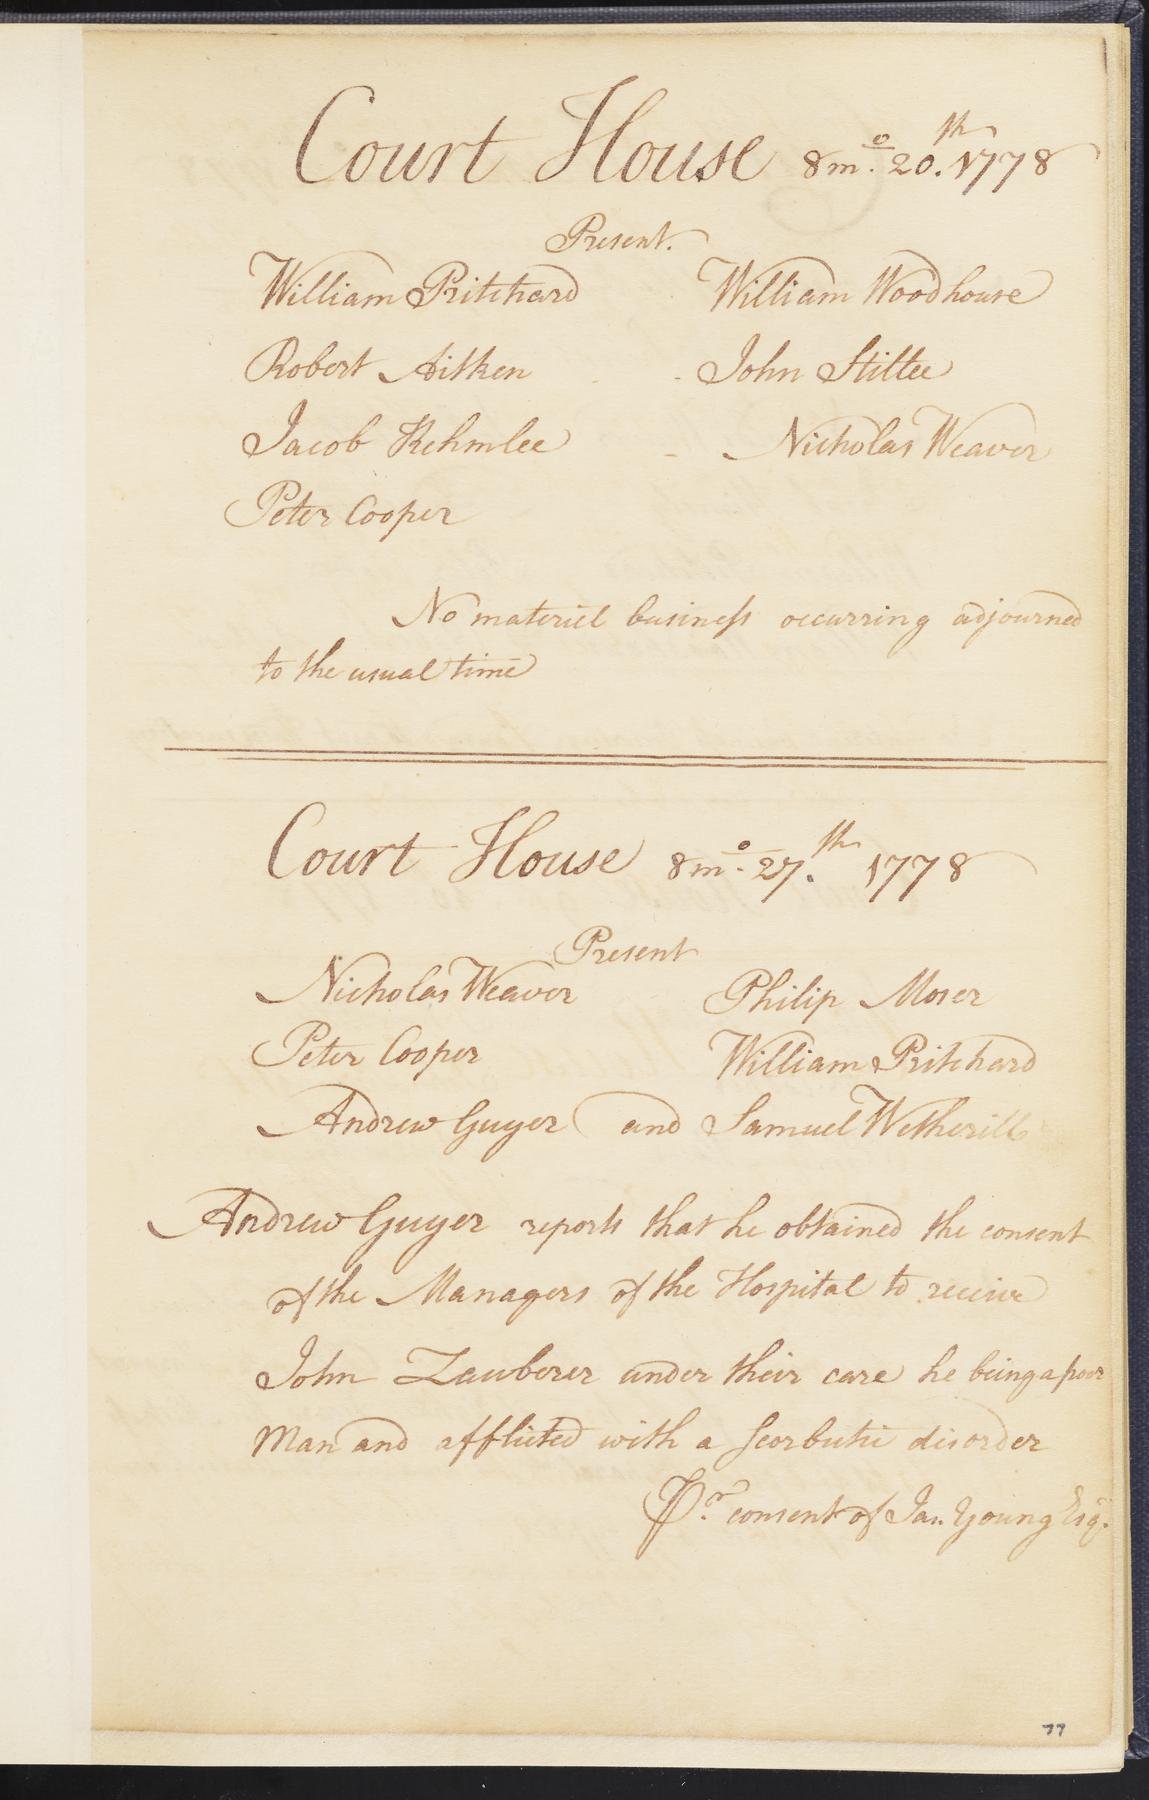 Court House 8m.o 20.th 1778
Present.
William Pritchard William Woodhouse
Robert Aitken - John Stillee
Jacob Rehmlee - Nicholas Weaver
Peter Cooper
No materiel business occurring adjourned
to the usual time
Court House 8m.o 27.th 1778
Present
Nicholas Weaver Philip Moser
Peter Cooper William Pritchard
Andrew Guyer and Samuel Wetherill
Andrew Guyer reports that he obtained the consent
of the Managers of the Hospital to receive
John Zauberer under their care he being a poor
Man and afflicted with a Scorbutic disorder
Pr. consent of Jas. Young Esqr.
77